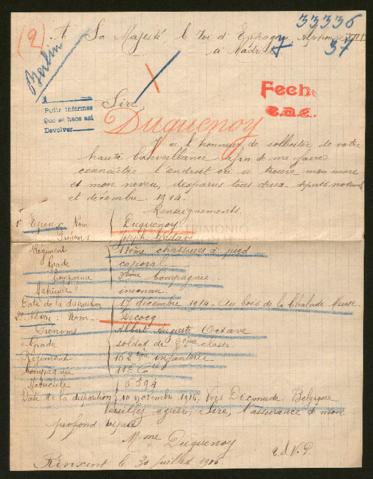 (2)
A Sa Majesté le Roi d'Espagne Alphonse XIII
à Madrid
33336
37
Berlin
Pedir informes
Que se hace así
Devolver
Fech
e.a.c.
Sire
Duquenoy
J'ai l'honneur de solliciter de votre
haute bienveillance afin de me faire
connaître l'endroit où se trouve mon mari
et mon neveu, disparus tous deux depuis novembre
et décembre 1914.
Renseignements
1° Epoux Nom Duquenoy
Joseph
Régiment chasseurs à pied
Grade caporal
Compagnie compagnie
Matricule inconnu
Date de la disparition 17 décembre 1914. au bois de la Meuse
2° Nom Decocq
Prénoms Albert Auguste Octave
Grade soldat de 2ème classe
Régiment infanterie
Compagnie 11e Cie
Matricule
Date de la disparition 10 novembre 1914. Dixmude Belgique
Veuillez agréer, Sire, l'assurance de mon
profond respect
Mme Duquenoy
Rinxent le 30 juillet 1916.